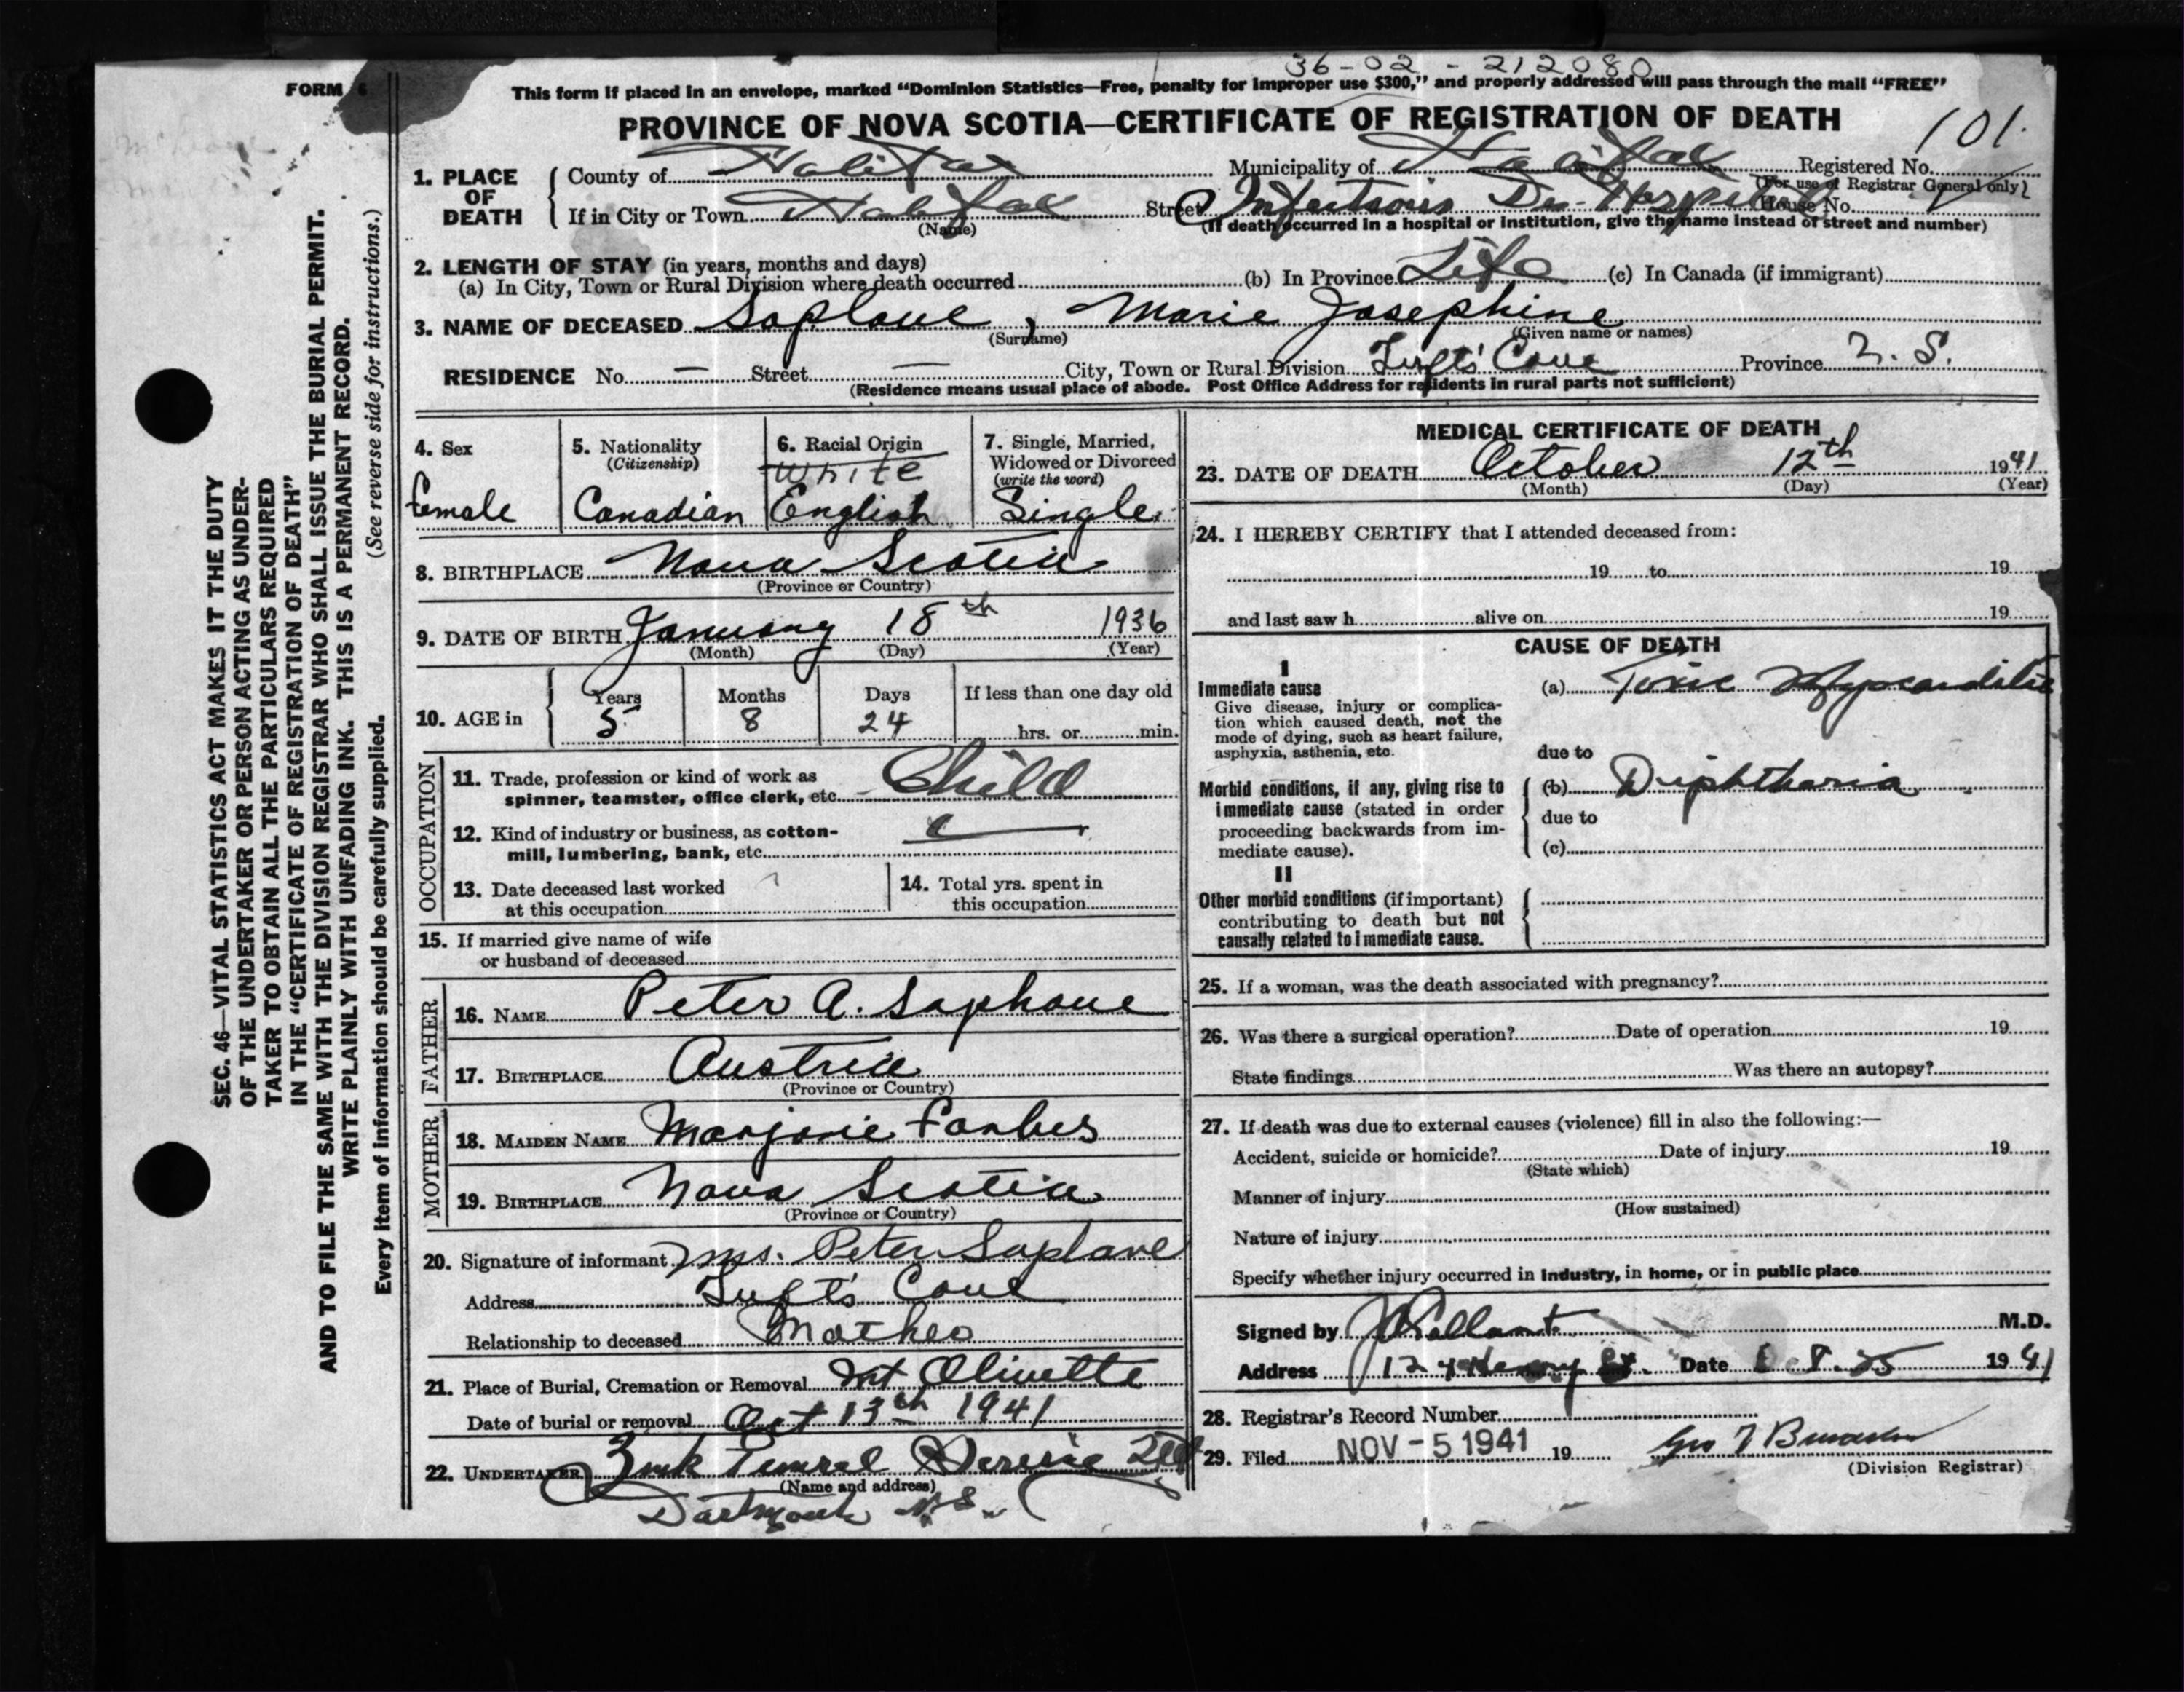 36-02-212080
FORM 6
This form if placed in an envelope, marked “Dominion Statistics—Free, penalty for improper use $300,” and properly addressed will pass through the mail “FREE”
PROVINCE OF NOVA SCOTIA—CERTIFICATE OF REGISTRATION OF DEATH
101.
1. PLACE OF DEATH
County of Halifax Municipality of Halifax Registered No.
(For use of Registrar General only)
If in City or Town Halifax Street Infectious Dis. Hospital House No.
(Name) (If death occurred in a hospital or institution, give the name instead of street and number)
2. LENGTH OF STAY (in years, months and days)
(a) In City, Town or Rural Division where death occurred (b) In Province Life (c) In Canada (if immigrant)
3. NAME OF DECEASED Saplave, Marie Josephine
(Surname) (Given name or names)
RESIDENCE No. — Street — City, Town or Rural Division Tuft's Cove Province N. S.
(Residence means usual place of abode. Post Office Address for residents in rural parts not sufficient)
4. Sex
female
5. Nationality
(Citizenship)
Canadian
6. Racial Origin
White
English
7. Single, Married,
Widowed or Divorced
(write the word)
Single
8. BIRTHPLACE Nova Scotia
(Province or Country)
9. DATE OF BIRTH January 18th 1936
(Month) (Day) (Year)
10. AGE in
Years Months Days If less than one day old
5 8 24 hrs. or min.
OCCUPATION
11. Trade, profession or kind of work as
spinner, teamster, office clerk, etc. Child
12. Kind of industry or business, as cotton-
mill, lumbering, bank, etc.
13. Date deceased last worked
at this occupation
14. Total yrs. spent in
this occupation
15. If married give name of wife
or husband of deceased
FATHER
16. NAME Peter A. Saphave
17. BIRTHPLACE Austria
(Province or Country)
MOTHER
18. MAIDEN NAME Marjorie Forbes
19. BIRTHPLACE Nova Scotia
(Province or Country)
20. Signature of informant Mrs. Peter Saplave
Address Tuft's Cove
Relationship to deceased Mother
21. Place of Burial, Cremation or Removal Mt Olivette
Date of burial or removal Oct 13th 1941
22. UNDERTAKER Zink Funeral Service Ltd
(Name and address)
Dartmouth N.S.
MEDICAL CERTIFICATE OF DEATH
23. DATE OF DEATH October 12th 1941
(Month) (Day) (Year)
24. I HEREBY CERTIFY that I attended deceased from:
19 to 19
and last saw h alive on 19
CAUSE OF DEATH
I
Immediate cause
Give disease, injury or complica-
tion which caused death, not the
mode of dying, such as heart failure,
asphyxia, asthenia, etc.
(a) Toxic Myocarditis
due to
Morbid conditions, if any, giving rise to
immediate cause (stated in order
proceeding backwards from im-
mediate cause).
(b) Diphtheria
due to
(c)
II
Other morbid conditions (if important)
contributing to death but not
causally related to immediate cause.
25. If a woman, was the death associated with pregnancy?
26. Was there a surgical operation? Date of operation 19
State findings Was there an autopsy?
27. If death was due to external causes (violence) fill in also the following:—
Accident, suicide or homicide? Date of injury 19
(State which)
Manner of injury
(How sustained)
Nature of injury
Specify whether injury occurred in industry, in home, or in public place
Signed by M.D.
Address Henry St. Date 25 1941
28. Registrar's Record Number
29. Filed NOV - 5 1941 19
(Division Registrar)
SEC. 46—VITAL STATISTICS ACT MAKES IT THE DUTY
OF THE UNDERTAKER OR PERSON ACTING AS UNDER-
TAKER TO OBTAIN ALL THE PARTICULARS REQUIRED
IN THE “CERTIFICATE OF REGISTRATION OF DEATH”
AND TO FILE THE SAME WITH THE DIVISION REGISTRAR WHO SHALL ISSUE THE BURIAL PERMIT.
WRITE PLAINLY WITH UNFADING INK. THIS IS A PERMANENT RECORD.
(See reverse side for instructions.)
Every item of information should be carefully supplied.